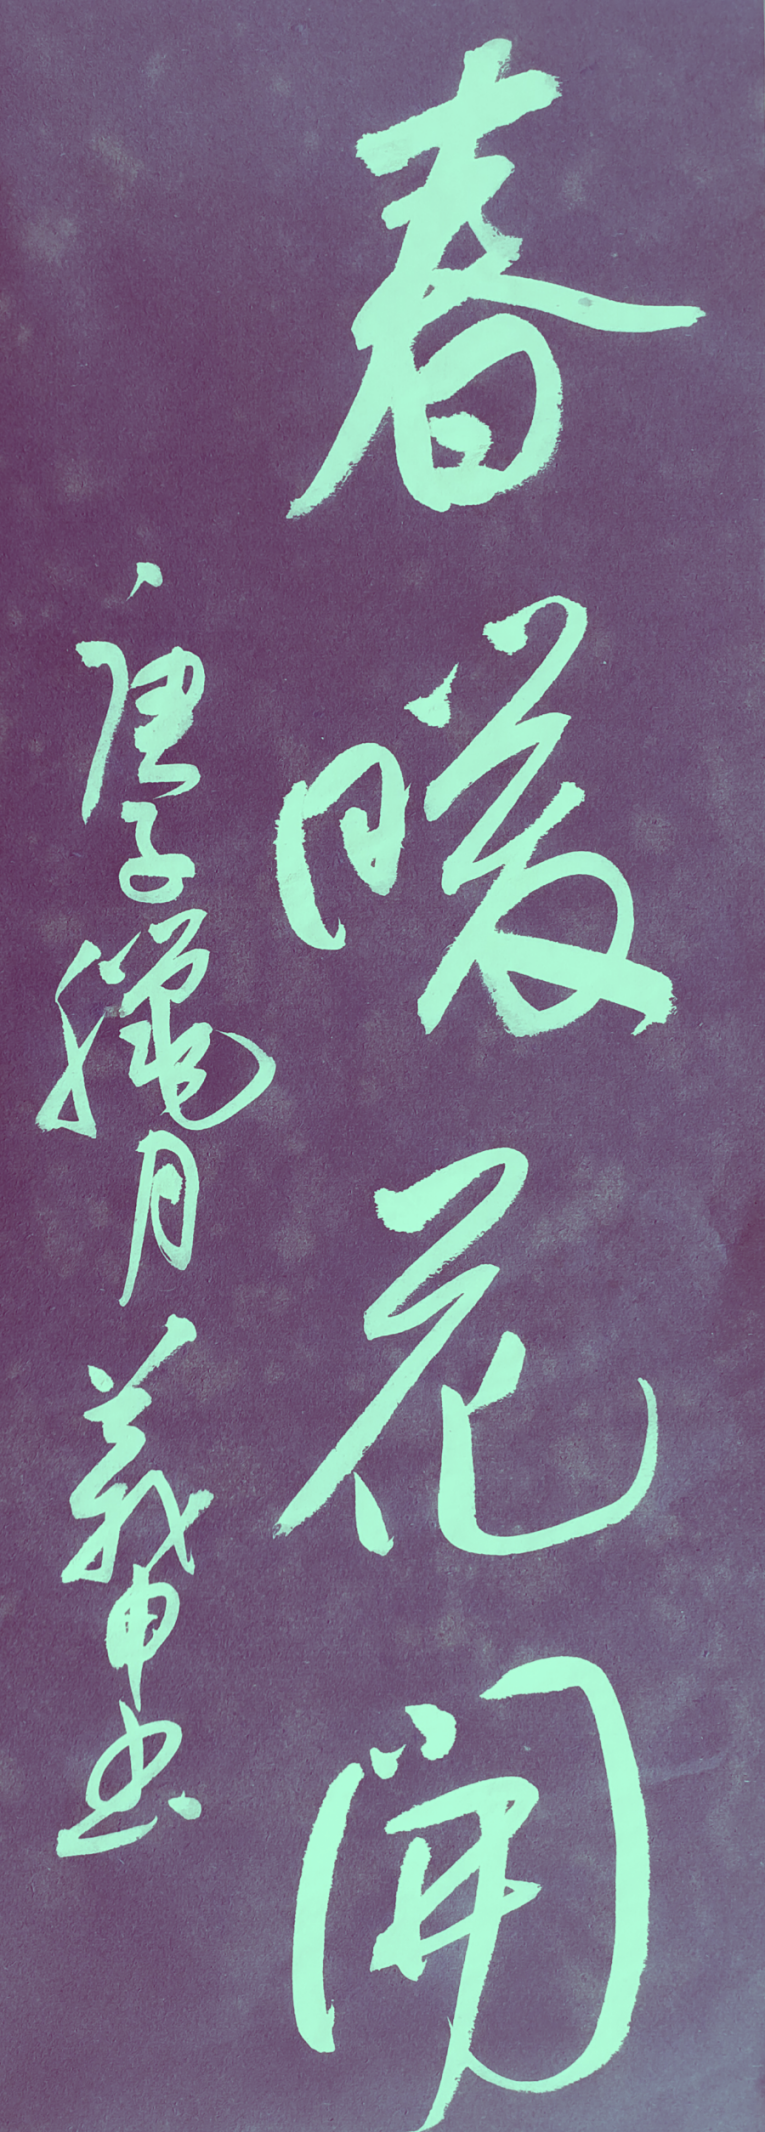 春暖花開
庚子臘月義申书